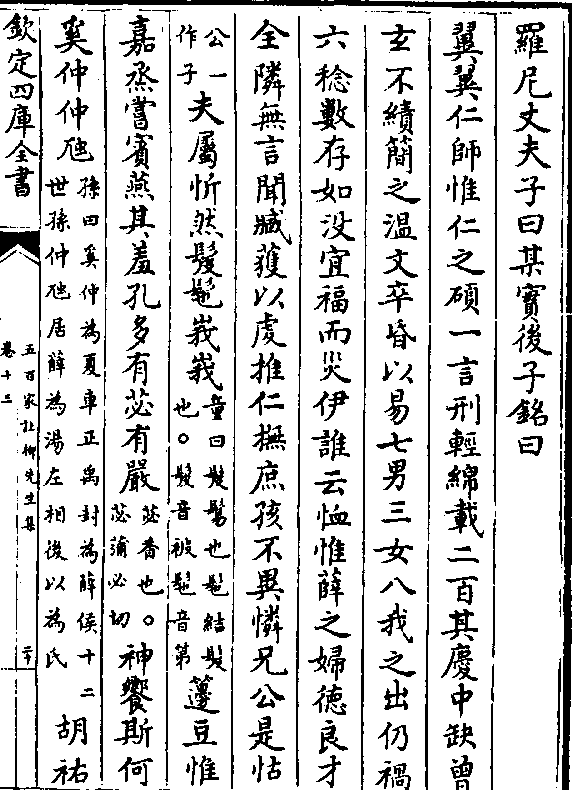 羅尼丈夫子曰某實後子銘曰
翼翼仁師惟仁之碩一言刑輕綿載二百其慶中缺曾
玄不績簡之溫文卒昏以易七男三女八我之出仍禍
六稔數存如没宜福而災伊誰云恤惟薛之婦德良才
全隣無言聞臧獲以虔推仁撫庶孩不異憐兄公是怙
公一作子夫屬忻然髲髢峩峩童曰髲鬄也髢結髮也。髲音被髢音第籩豆惟
嘉烝嘗賓燕其羞孔多有苾有嚴苾香也。苾蒲必切神饗斯何
奚仲仲虺孫曰奚仲為夏車正禹封為薛侯十二世孫仲虺居薛為湯左相後以為氏胡祐
欽定四庫全書
五百家註柳先生集
卷十三
二十